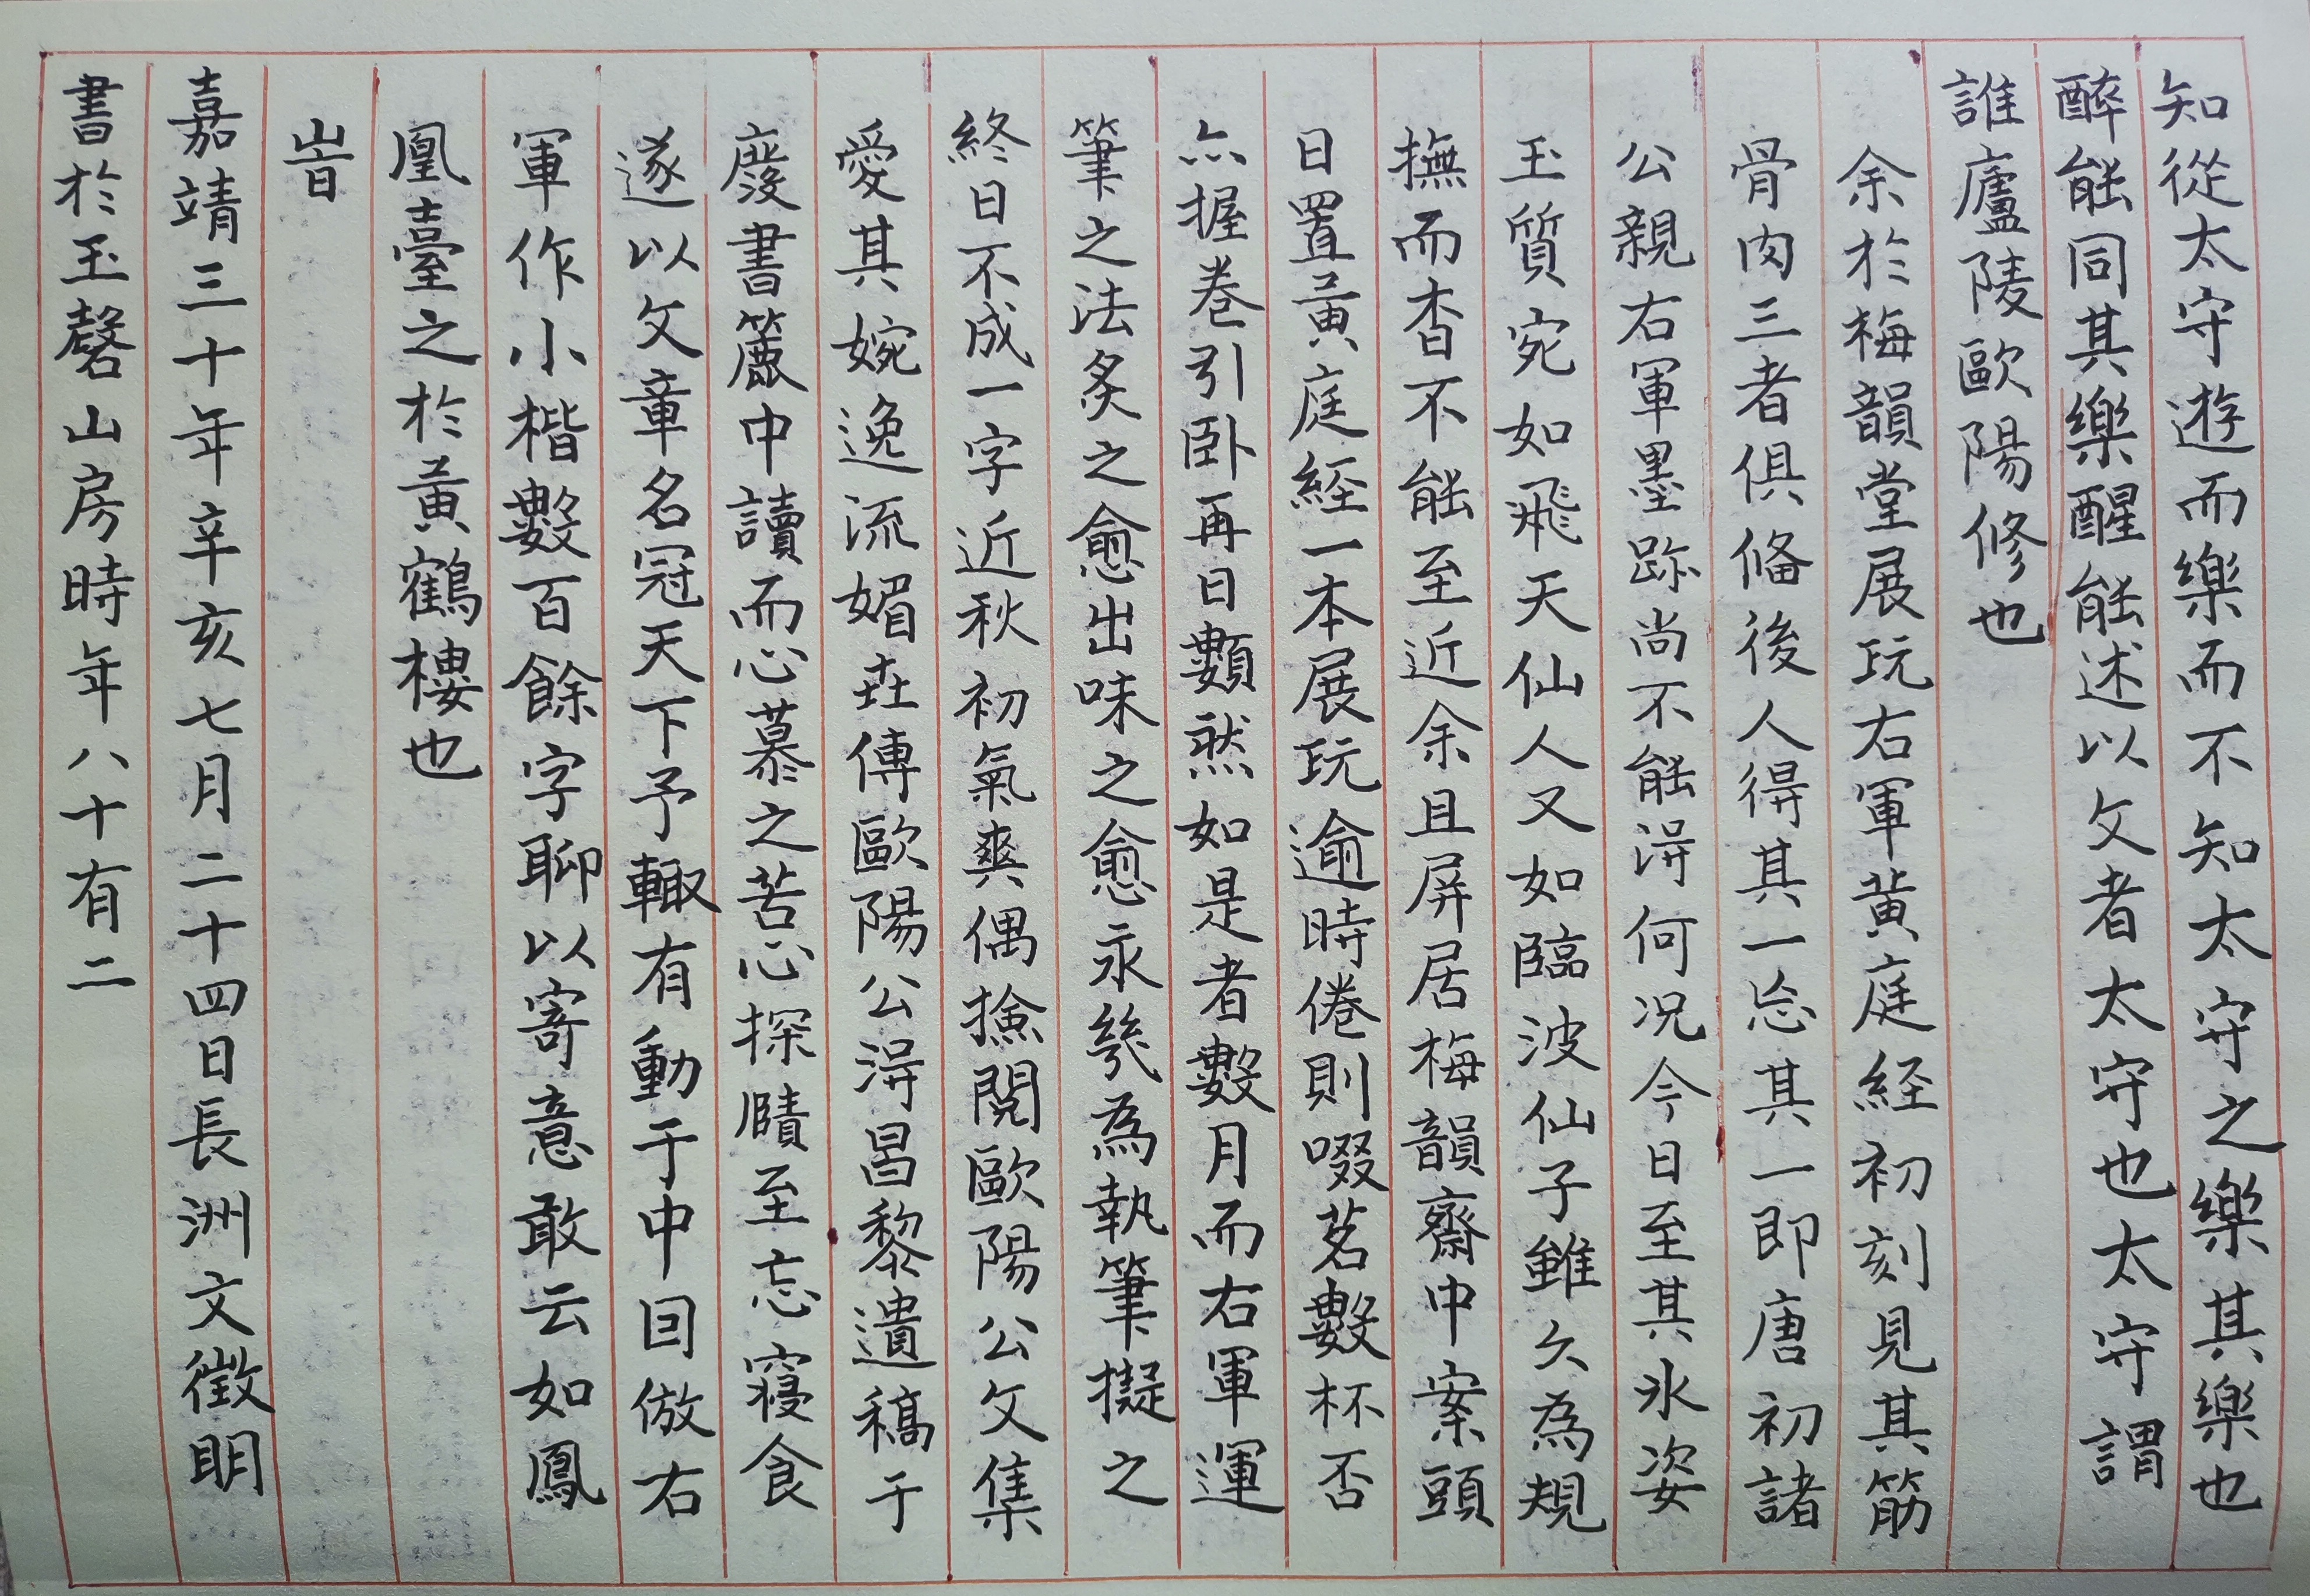 知從太守遊而樂而不知太守之樂其樂也
醉能同其樂醒能述以文者太守也太守謂
誰廬陵歐陽修也
余於梅韻堂展玩右軍黃庭経初刻見其筋
骨肉三者俱俻後人得其一忘其一即唐初諸
公親右軍墨跡尚不能淂何况今日至其氷姿
玉質宛如飛天仙人又如臨波仙子雖久為規
撫而杳不能至近余且屏居梅韻齋中案頭
日置黃庭經一本展玩逾時倦則啜茗數杯否
亦握卷引卧再日類然如是者數月而右軍運
筆之法炙之愈出味之愈永幾為執筆擬之
終日不成一字近秋初氣爽偶撿閱歐陽公文集
愛其婉逸流媚世傳歐陽公淂昌黎遺稿于
廢書簏中讀而心慕之苦心探賾至忘寝食
遂以文章名冠天下予輙有動于中因倣右
軍作小楷數百餘字聊以寄意敢云如鳳
凰臺之於黃鶴樓也
旹
嘉靖三十年辛亥七月二十四日長洲文徵明
書於玉磬山房時年八十有二